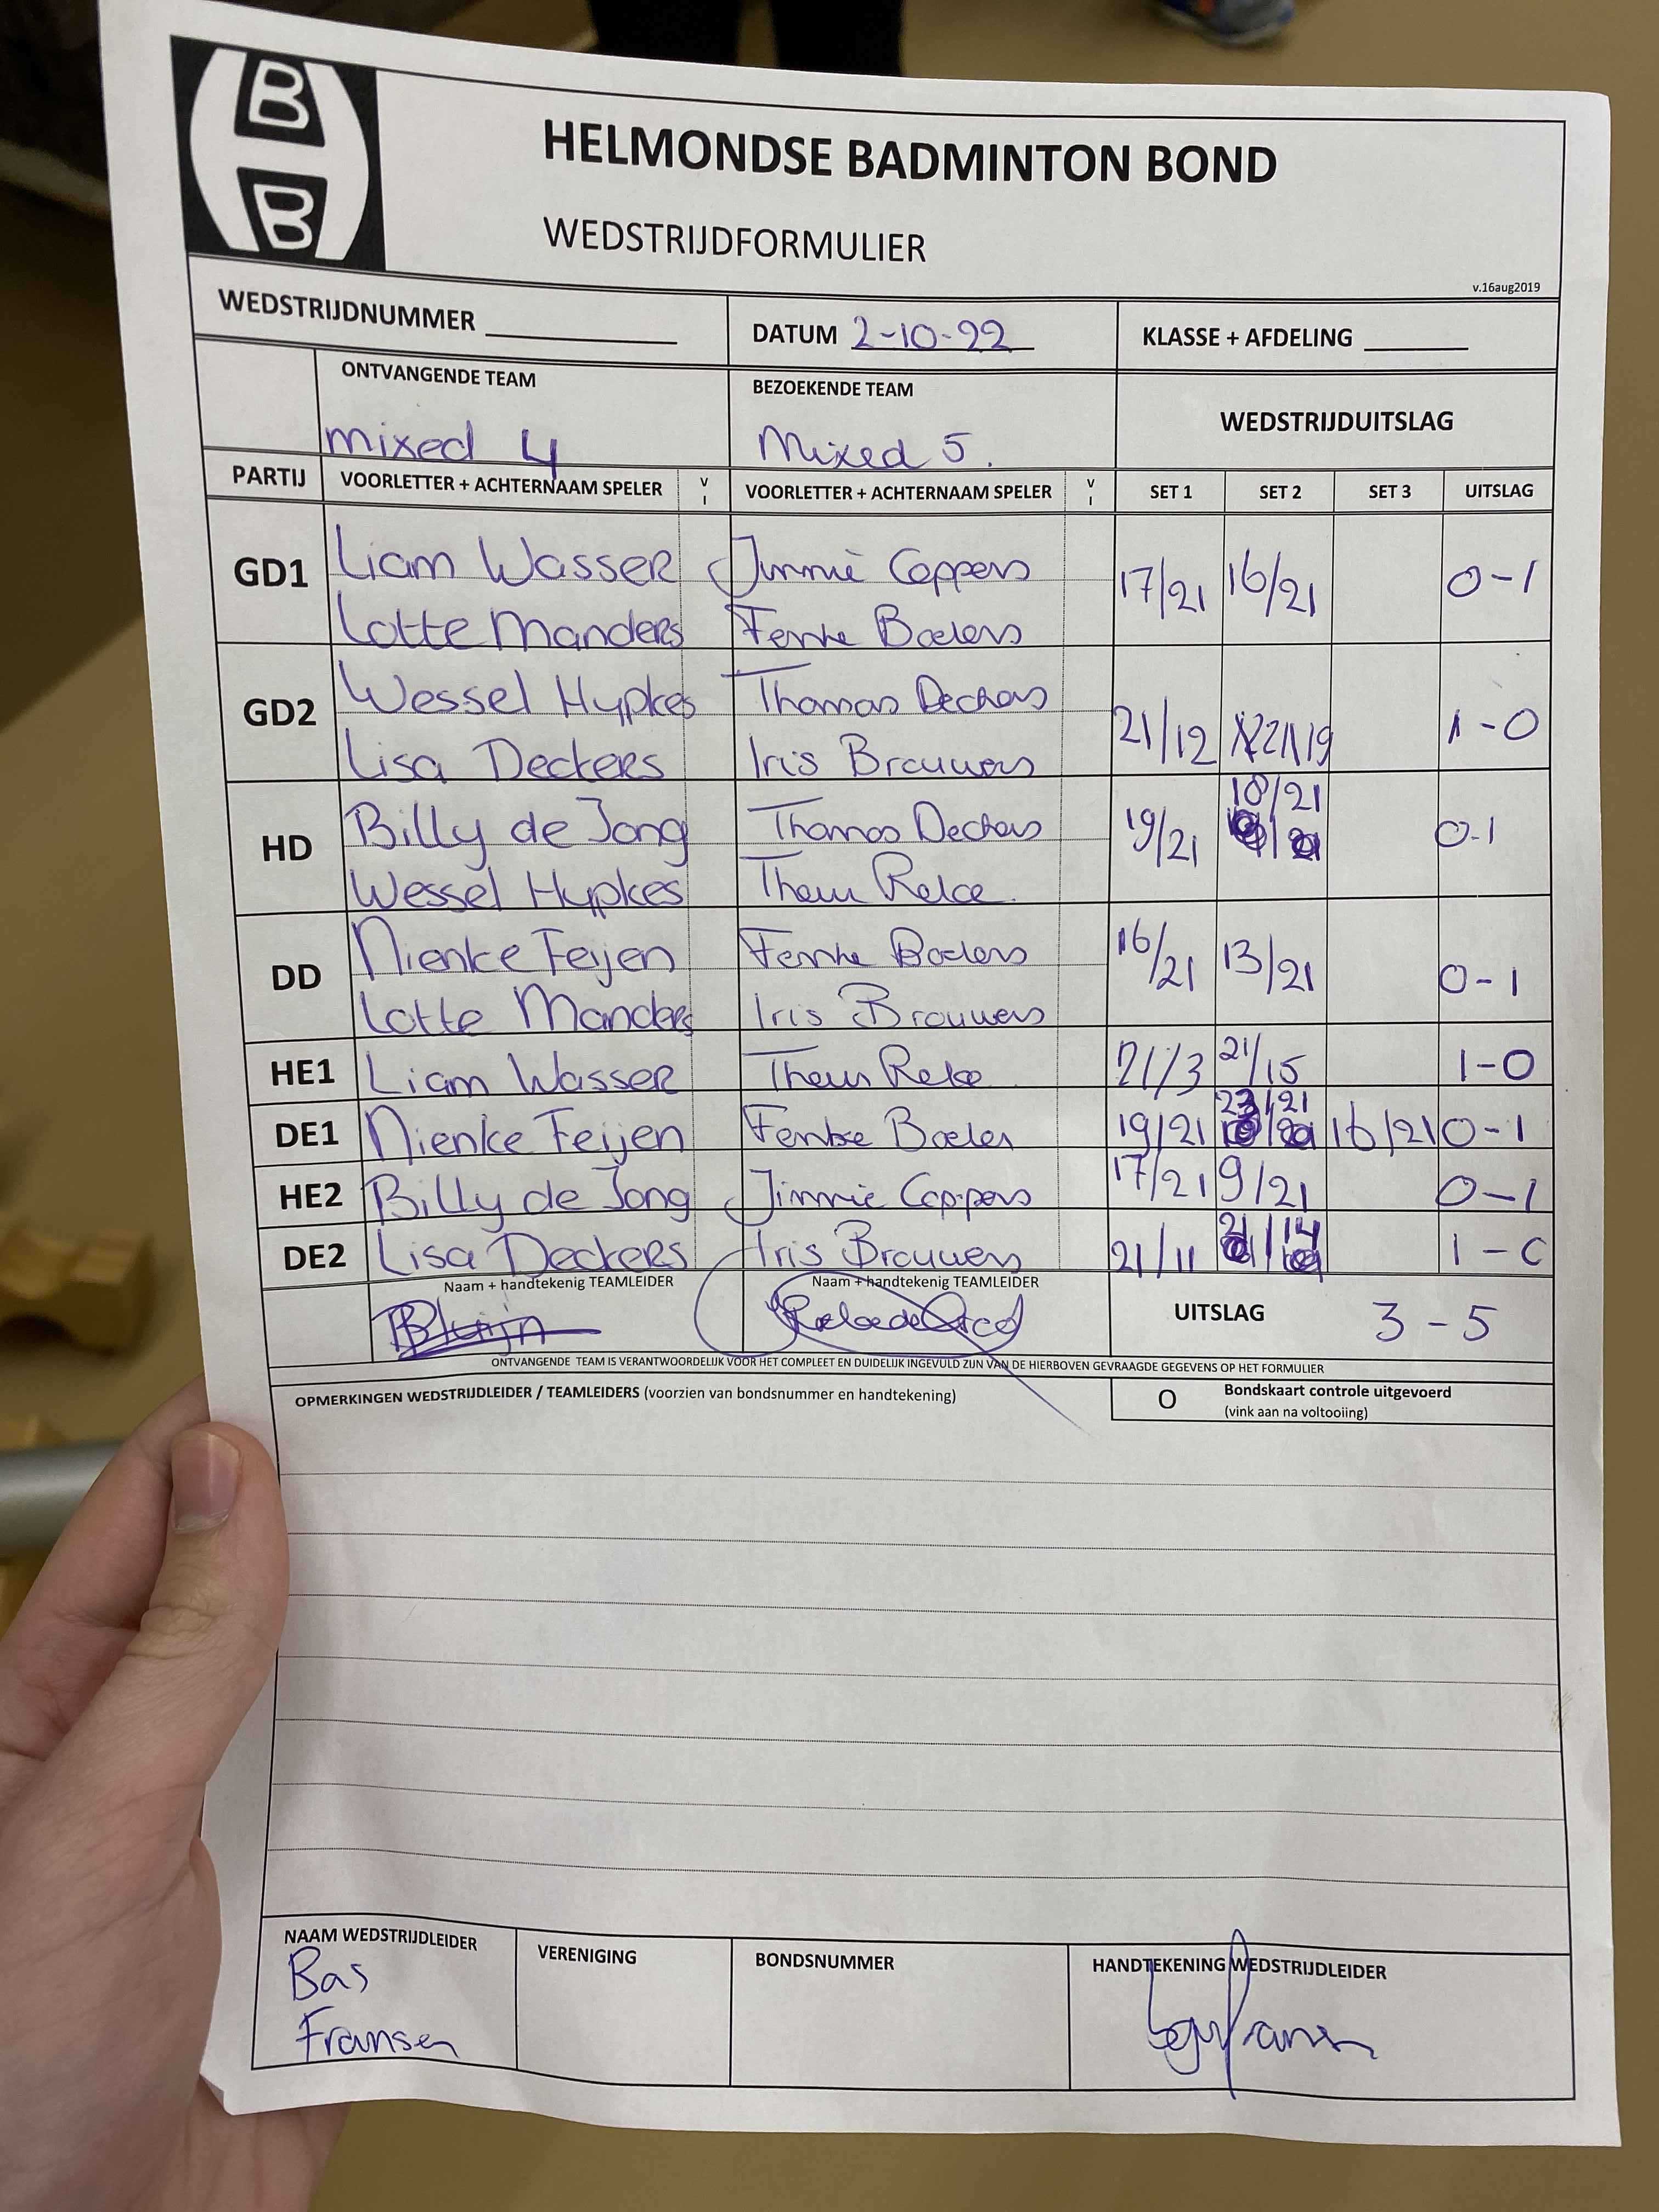 B
B
HELMONDSE BADMINTON BOND
WEDSTRIJDFORMULIER
v.16aug2019
WEDSTRIJDNUMMER DATUM 2-10-22 KLASSE + AFDELING
ONTVANGENDE TEAM BEZOEKENDE TEAM WEDSTRIJDUITSLAG
mixed 4 Mixed 5.
PARTIJ VOORLETTER + ACHTERNAAM SPELER V I VOORLETTER + ACHTERNAAM SPELER V I SET 1 SET 2 SET 3 UITSLAG
GD1 Liam Wasser Jimmie Coppens 17/21 16/21 0-1
Lotte Manders Femke Boelens
GD2 Wessel Hypkes Thomas Deckers 21/12 21/19 1-0
Lisa Deckers Iris Brouwers
HD Billy de Jong Thomas Deckers 19/21 18/21 0-1
Wessel Hypkes Theun
DD Nienke Feijen Femke Boelens 16/21 13/21 0-1
Lotte Manders Iris Brouwers
HE1 Liam Wasser Theun 21/15 1-0
DE1 Nienke Feijen Femke Boelen 19/21 23/21 16/21 0-1
HE2 Billy de Jong Jimmie Coppens 17/21 9/21 0-1
DE2 Lisa Deckers Iris Brouwers 21/11 21/14 1-0
Naam + handtekenig TEAMLEIDER Naam + handtekenig TEAMLEIDER
UITSLAG 3-5
ONTVANGENDE TEAM IS VERANTWOORDELIJK VOOR HET COMPLEET EN DUIDELIJK INGEVULD ZIJN VAN DE HIERBOVEN GEVRAAGDE GEGEVENS OP HET FORMULIER
OPMERKINGEN WEDSTRIJDLEIDER / TEAMLEIDERS (voorzien van bondsnummer en handtekening) O Bondskaart controle uitgevoerd
(vink aan na voltooiing)
NAAM WEDSTRIJDLEIDER VERENIGING BONDSNUMMER HANDTEKENING WEDSTRIJDLEIDER
Bas
Fransen